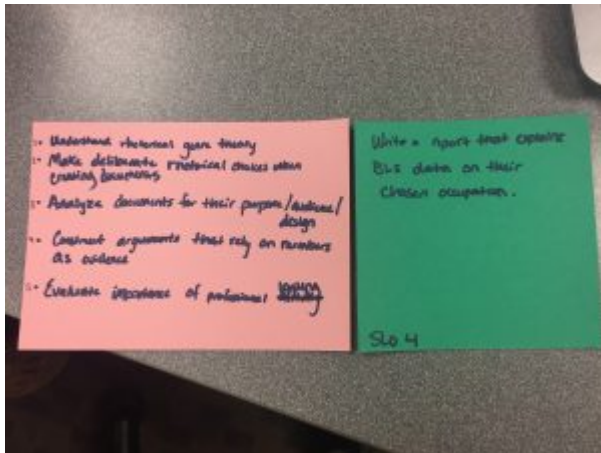 1. Understand rhetorical genre theory
2. Make deliberate rhetorical choices when
creating documents
3. Analyze documents for their purpose/audience/
design
4. Construct arguments that rely on numbers
as evidence
5. Evaluate importance of professional
Write a report that explains
BLS data on their
chosen occupation.
SLO 4